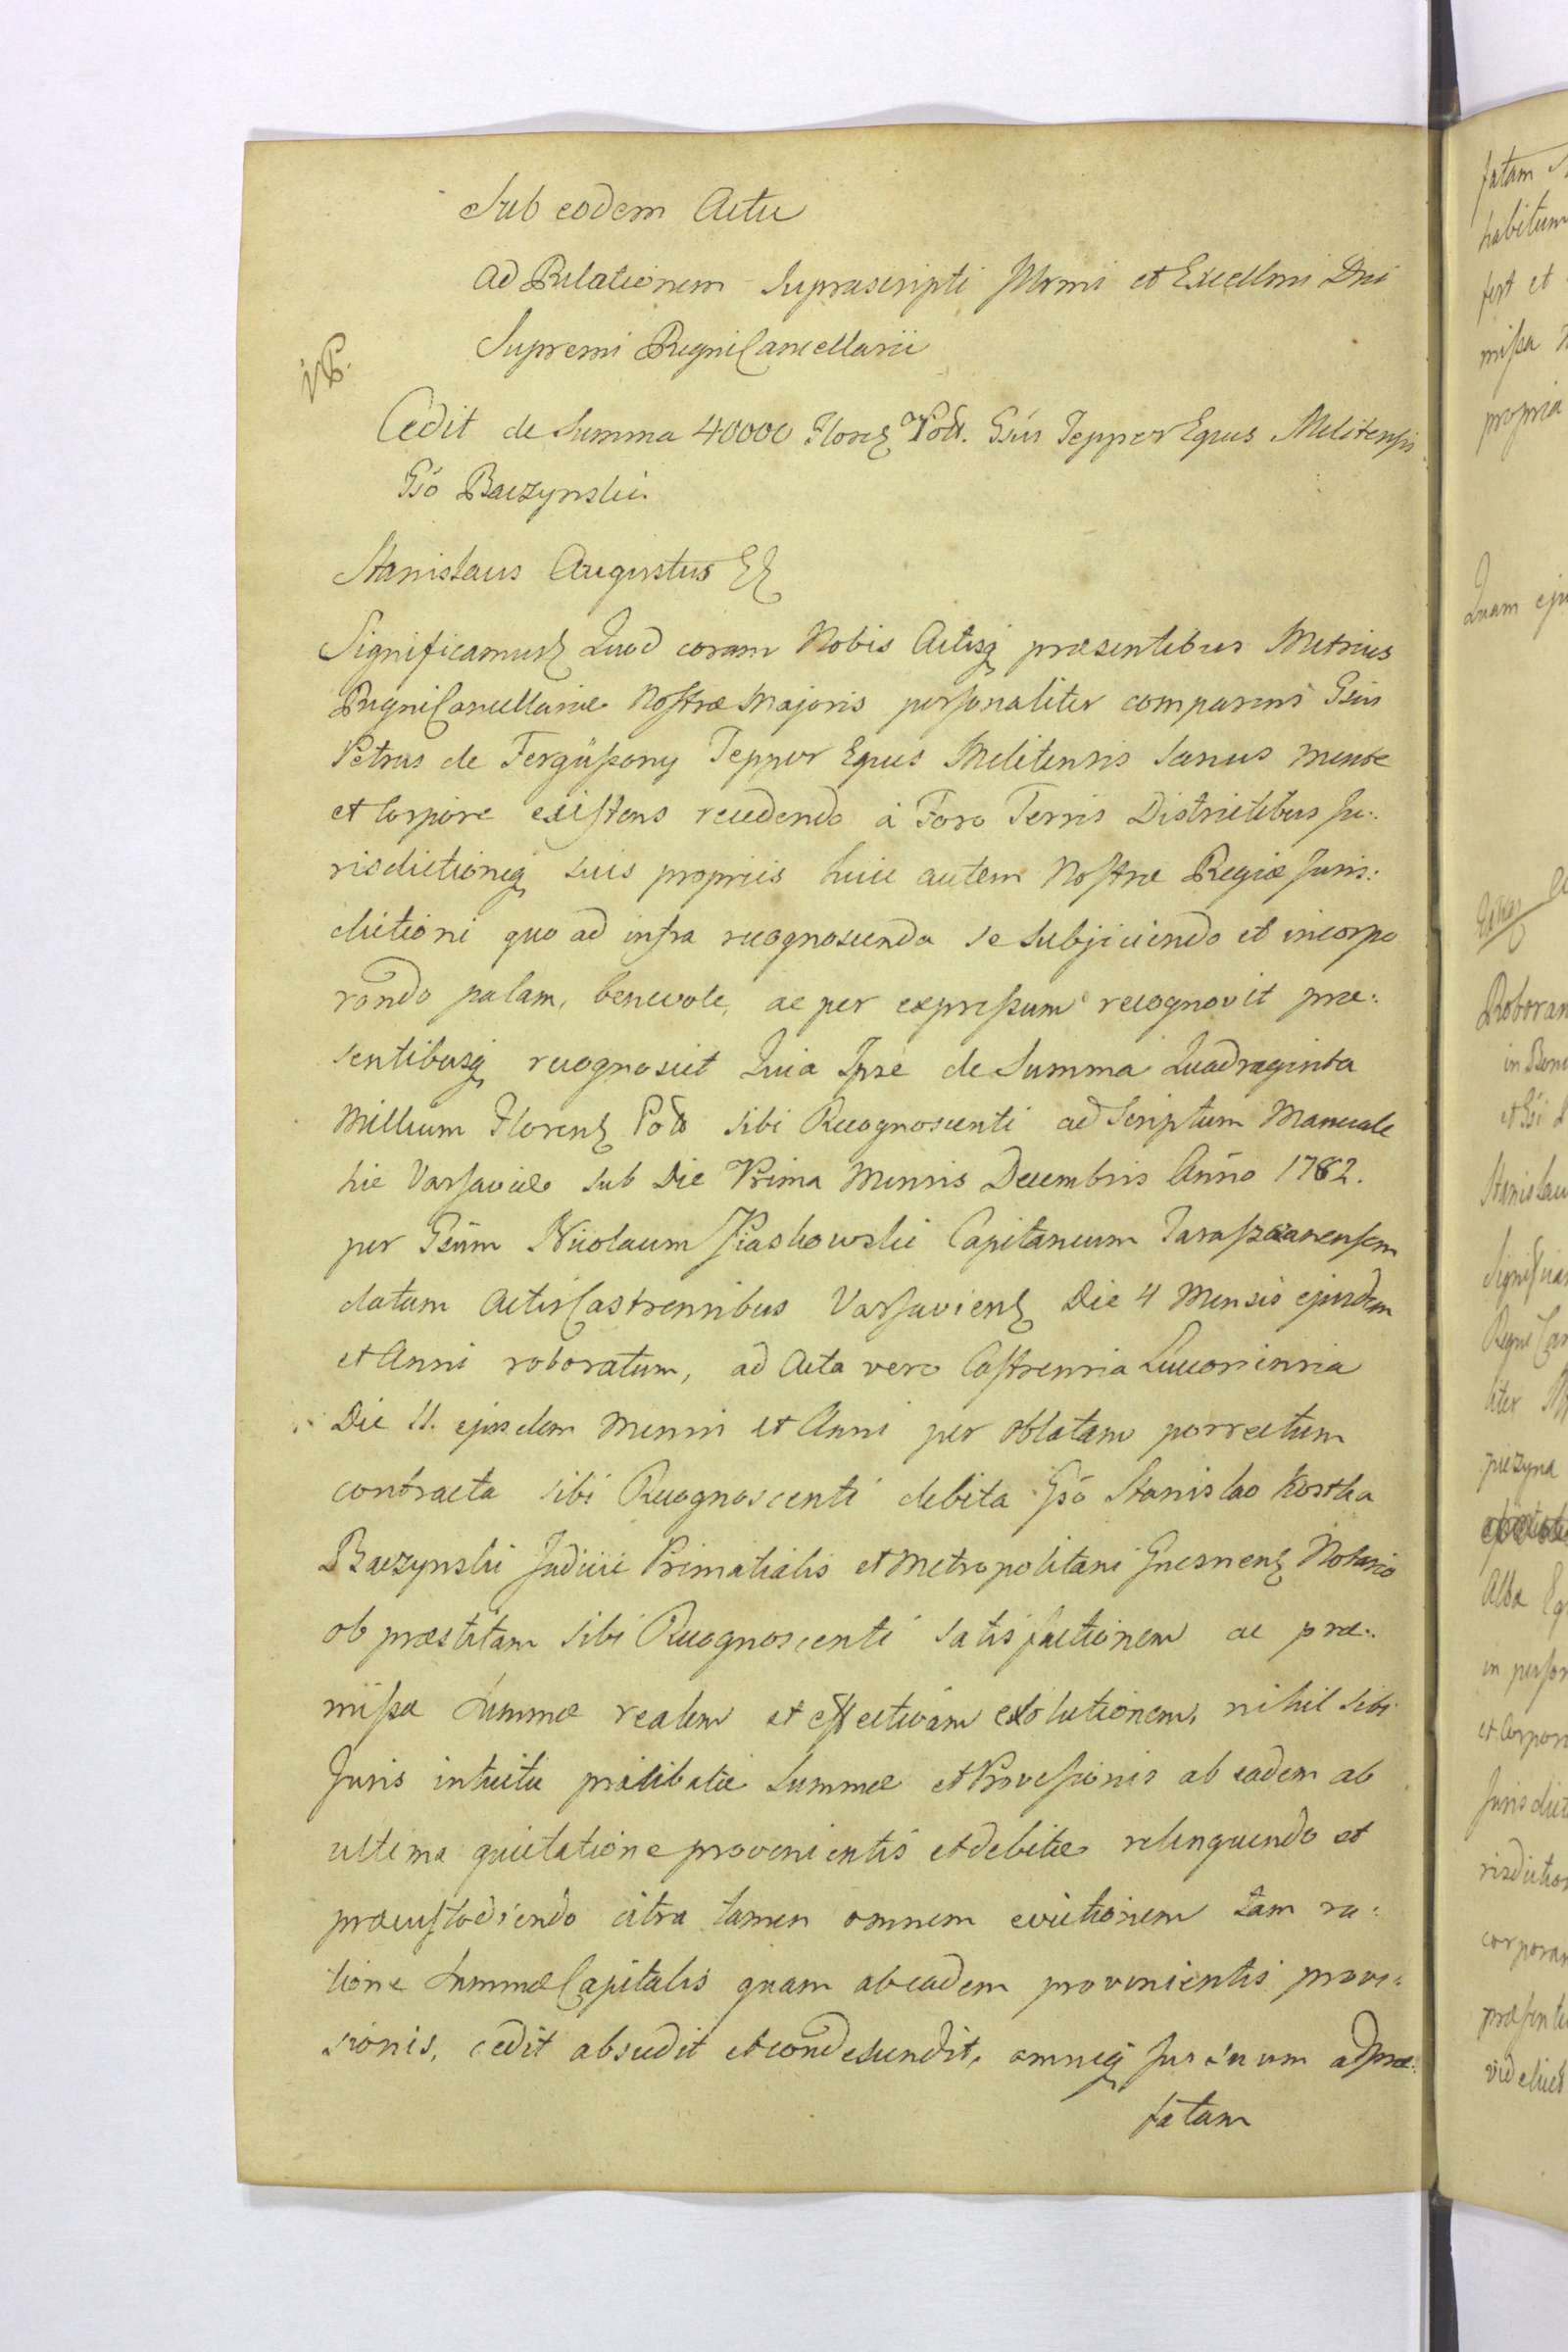 Sub eodem Actu
Ad Relationem Suprascripti Illrmi et Excellmi Dni
Supremi Regni Cancellarii
Cedit de Summa 40000 Floren Poll. Gsus Tepper Eques Melitensis
Gso Baczynski
Stanislaus Augustus
Significamus Quod coram Nobis Actisq presentibus Metrices
Regni Cancellariæ Nostræ Majoris personaliter comparens Gsus
Petrus de Fergusony Tepper Eques Melitensis sanus mente
et Corpore existens recedendo à Foro Terris Districtibus Ju:
risdictioneq suis propriis huic autem Nostræ Regiæ Juris:
dictioni quo ad infra recognoscenda se subjiciendo et incorpo
rando palam, benevole, ac per expressum recognovit præ:
sentibusq recognoscit Quia Ipse de Summa Quadraginta
Millium Floren Poll sibi Recognoscenti ad Scriptum Manuale
hic Varsaviæ sub Die Prima Mensis Decembris Anno 1782.
per Gsum Nicolaum Piaskowski Capitaneum Taraszczanensem
datum Actis Castrensibus Varsavien Die 4 Mensis ejusdem
et Anni roboratum, ad Acta vero Castrensia Luceoriensia
Die 11. ejusdem Mensis et Anni per oblatam porrectum
contracta sibi Recognoscenti debita Gso Stanislao Kostka
Baczynski Judicii Primatialis et Metropolitani Gnesnen Notario
ob præstitam sibi Recognoscenti satisfactionem ac præ:
missæ Summæ realem et effectivam exolutionem, nihil sibi
Juris intuitu prælibatæ Summæ et Provisionis ab eadem ab
ultima quietatione provenientis et debitæ relinquendo et
præcustodiendo citra tamen omnem evictionem tam ra:
tione Summæ Capitalis quam ab eadem provenientis provi:
sionis, cedit abscedit et condescendit, omneq Jus suum ad præ:
fatam